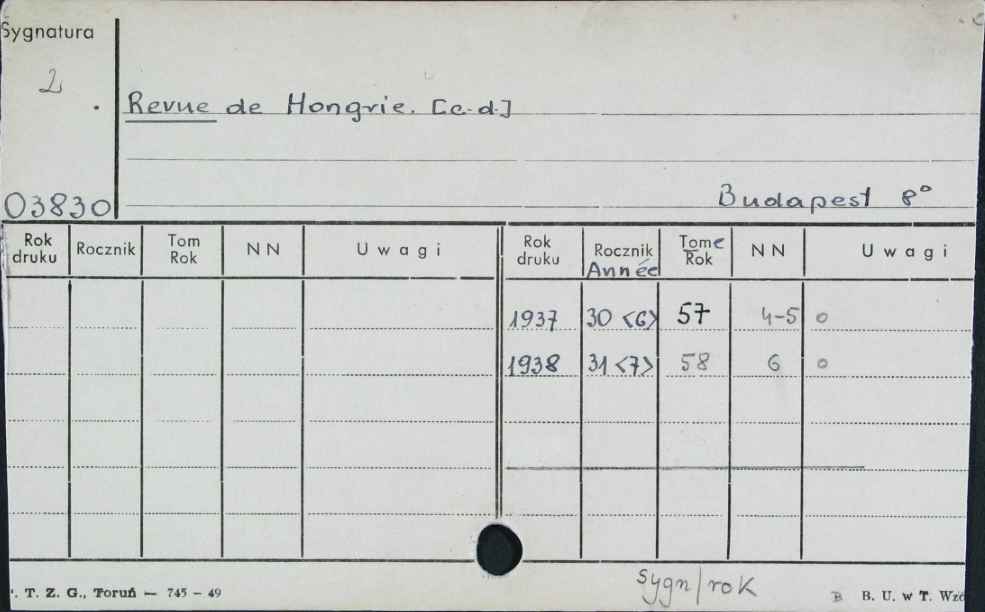 Sygnatura
2
Revue de Hongrie. [c.d.]
03830
Budapest 8°
Rok druku Rocznik Tom Rok NN Uwagi Rok druku Rocznik Année Tome Rok NN Uwagi
1937 30 <6> 57 4-5 o
1938 31 <7> 58 6 o
sygn/rok
T. Z. G., Toruń — 745 - 49
B. U. w T.